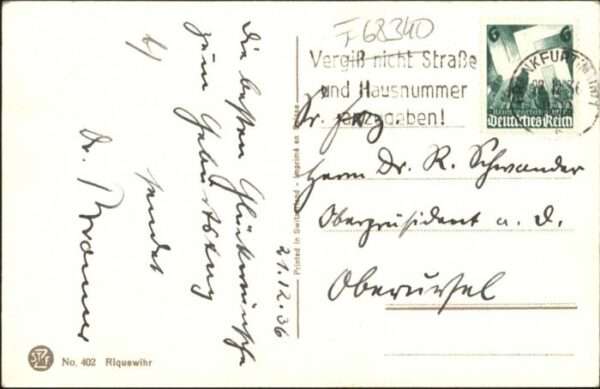 F 68340
6 6
Deutsches Reich
Vergiß nicht Straße
und Hausnummer
anzugeben!
FRANKFURT
Die besten Glückwünsche
zum Geburtstag
sendet
Dr.
21.12.36
Printed in Switzerland - Imprimé en Suisse
Sr. Hoz.
Herrn Dr. R. Schwander
Oberpräsident a. D.
Oberursel
No. 402 Riquewihr